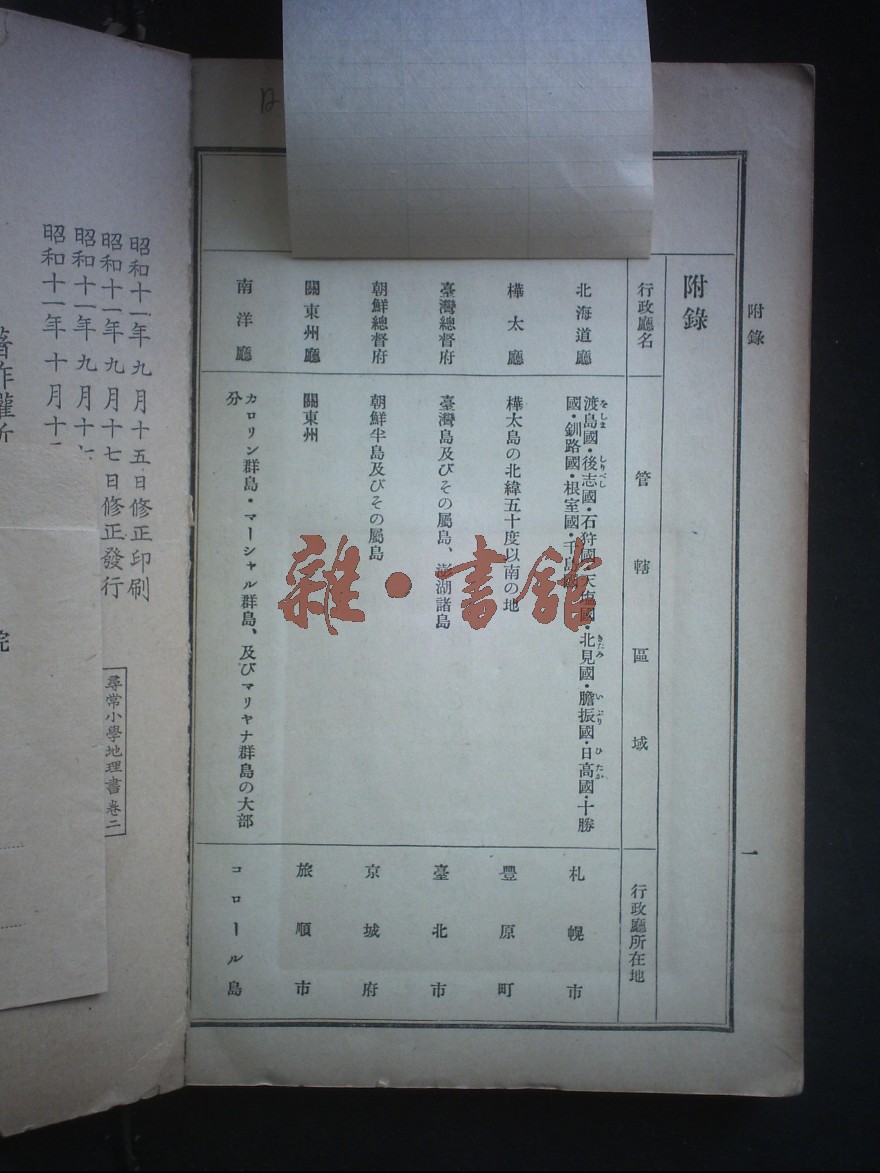 附錄
一
附錄
行政廳名 管轄區域 行政廳所在地
北海道廳 渡島國・後志國・石狩國・天鹽國・北見國・膽振國・日高國・十勝
をしま しりべし きたみ いぶり ひたか
國・釧路國・根室國・千島國 札幌市
樺太廳 樺太島の北緯五十度以南の地 豐原町
臺灣總督府 臺灣島及びその屬島、澎湖諸島 臺北市
朝鮮總督府 朝鮮半島及びその屬島 京城府
關東州廳 關東州 旅順市
南洋廳 カロリン群島・マーシャル群島、及びマリヤナ群島の大部
分 コロール島
雜・書館
昭和十一年九月十五日修正印刷
昭和十一年九月十七日修正發行
昭和十一年九月十
昭和十一年十月十
著作權所
尋常小學地理書卷二
院